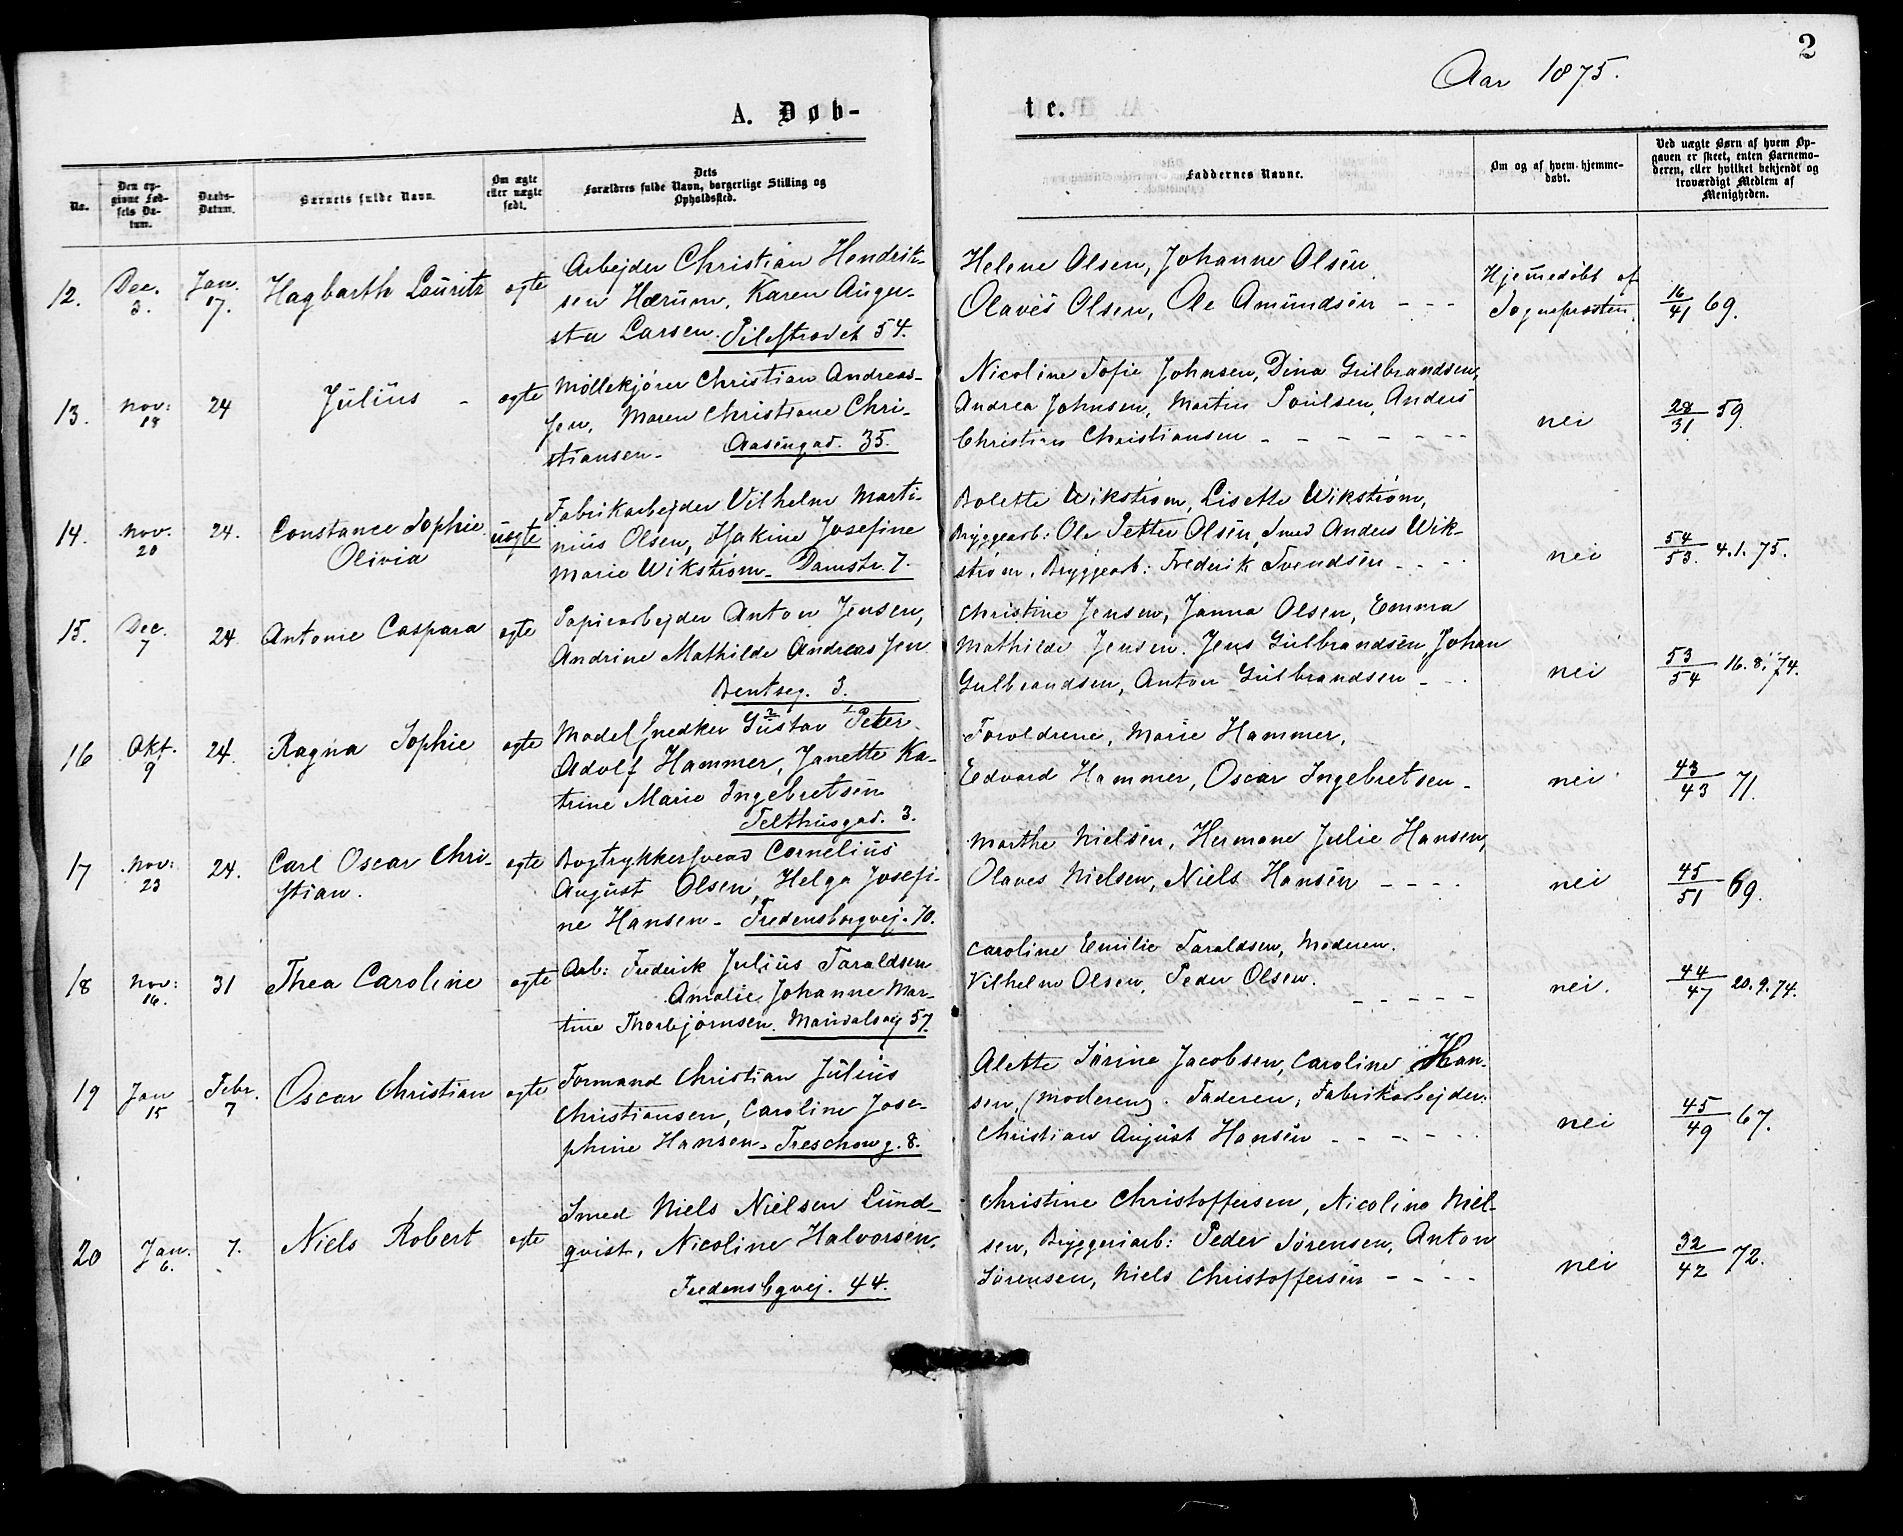 2
Aar 1875.
A. Døb-
te.
No.
Den op-
givne Fød-
sels Da-
tum.
Daabs-
Datum.
Barnets fulde Navn.
Om ægte
eller uægte
født.
Dets
Forældres fulde Navn, borgerlige Stilling og
Opholdssted.
Faddernes Navne.
Om og af hvem hjemme-
døbt.
Ved uægte Børn af hvem Op-
gaven er skeet, enten Barnemo-
deren, eller hvilket bekjendt og
troværdigt Medlem af
Menigheden.
12.
Dec.
3.
Jan.
17.
Hagbarth Lauritz
ægte
Arbejder Christian Hendrik-
sen Hærum, Karen Augu-
sta Larsen. Pilestrædet 54.
Helene Olsen, Johanne Olsen
Olaves Olsen, Ole Amundsen - - -
Hjemmedøbt af
Sognepræsten.
16/41 69.
13.
Nov:
18
24
Julius -
ægte
Møllekjører Christian Andreas-
sen, Maren Christiane Chri-
stiansen. Aasengad. 35.
Nicoline Sofie Johnsen, Dina Gulbrandsen,
Andrea Johnsen, Martin Poulsen, Anders
Christian Christiansen - - - - - - -
nei
28/31 59.
14.
Nov:
20
24.
Constance Sophie
Olivia
uægte
Fabrikarbejder Vilhelm Marti-
nius Olsen, Hakine Josefine
Marie Wikstrøm - Damstr. 7.
Bolette Wikstrøm, Lisette Wikstrøm,
Bryggearb: Ole Petter Olsen, Smed Anders Wik-
strøm, Bryggearb: Frederik Svendsen - - - -
nei
54/53. 4.1.75.
15.
Dec.
7
24.
Antonie Caspara
ægte
Papirarbejder Anton Jensen,
Andrine Mathilde Andreas Jen
Bentseg. 3.
Christine Jensen, Janna Olsen, Emma
Mathilde Jensen. Jens Gulbrandsen, Johan
Gulbrandsen, Anton Gulbrandsen - - -
nei
53/54 16.8.74.
16
Okt.
9
24.
Ragna Sophie
ægte
Modelsnedker Gustav 2 Peter 1
Adolf Hammer, Janette Ka-
trine Marie Ingebretsen
Telthusgad. 3.
Forældrene, Marie Hammer,
Edvard Hammer, Oscar Ingebretsen -
nei
43/43 71.
17
Nov:
23
24.
Carl Oscar Chri-
stian.
ægte
Bogtrykkersvend Cornelius
August Olsen, Helga Josefi-
ne Hansen - Fredensborgvej. 70.
Marthe Nielsen, Hermane Julie Hansen,
Olaves Nielsen, Niels Hansen - - - -
nei
45/51 69.
18
Nov:
16.
31
Thea Caroline
ægte
Arb: Frederik Julius Taraldsen
Amalie Johanne Mar-
tine Thorbjørnsen. Maridalsvej 57.
Caroline Emilie Taraldsen, Moderen.
Vilhelm Olsen, Peder Olsen. - - - - -
nei.
44/47 20.9.74.
19
Jan
15
Febr.
7
Oscar Christian
ægte
Formand Christian Julius
Christiansen, Caroline Jose-
phine Hansen - Treschowg. 8.
Alette Sørine Jacobsen, Caroline Han-
sen, (Moderen). Faderen, Fabrikarbejder
Christian August Hansen - - - - -
nei
45/49 67.
20
Jan.
6.
7.
Niels Robert
ægte
Smed Niels Nielsen Lund-
qvist, Nicoline Halvorsen.
Fredensbgvej. 44.
Christine Christoffersen, Nicoline Niel-
sen, Bryggeriarb: Peder Sørensen, Anton
Sørensen, Niels Christoffersen - - - -
nei
32/42 72.